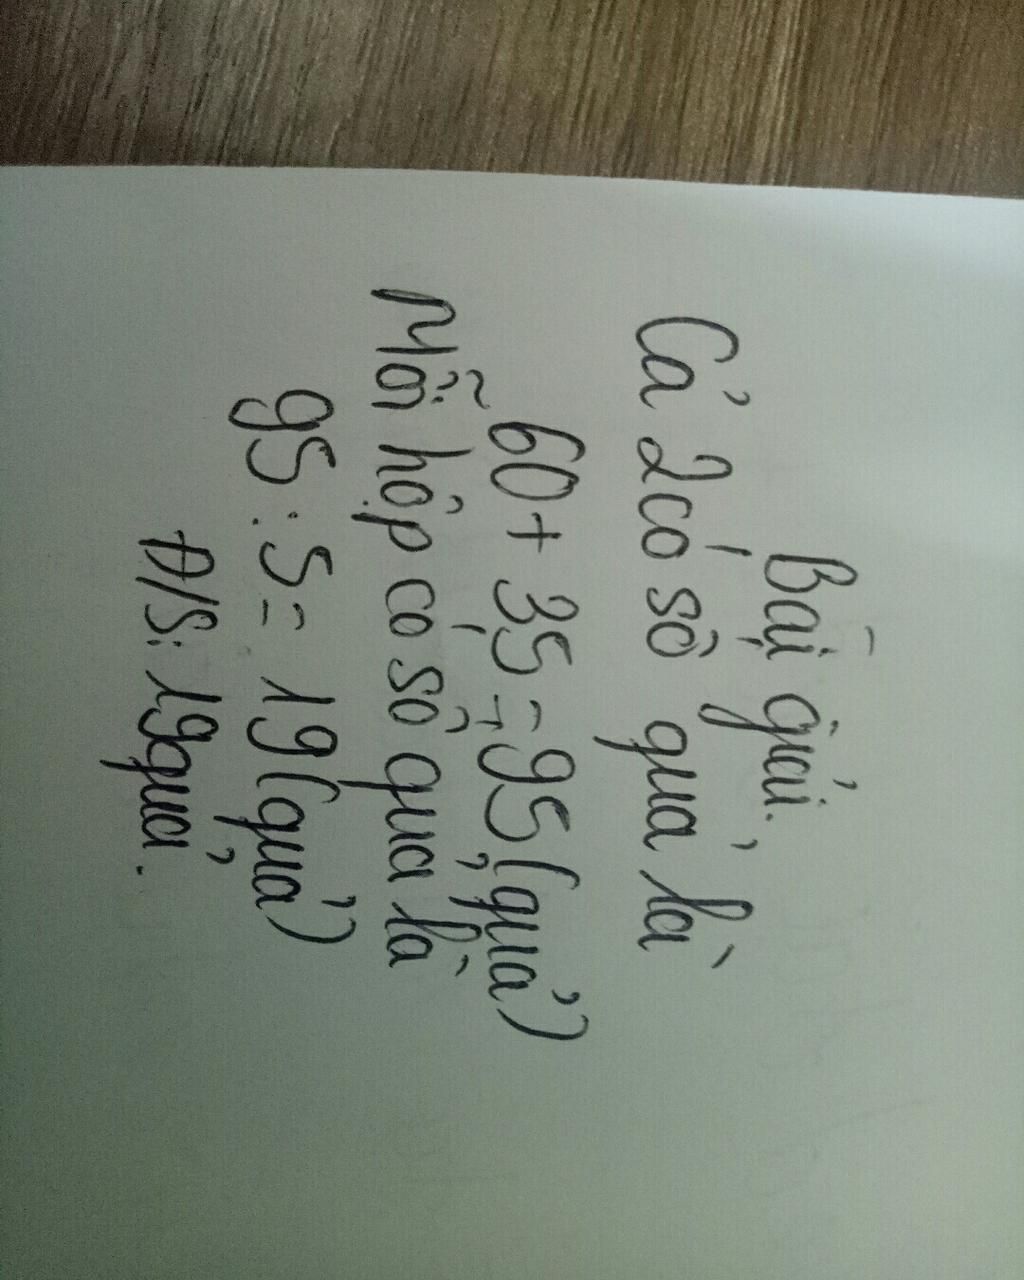 Bài giải.
Cả 2 có số quả là
60 + 35 = 95 (quả)
Mỗi hộp có số quả là
95 : 5 = 19 (quả)
Đ/S: 19 quả.